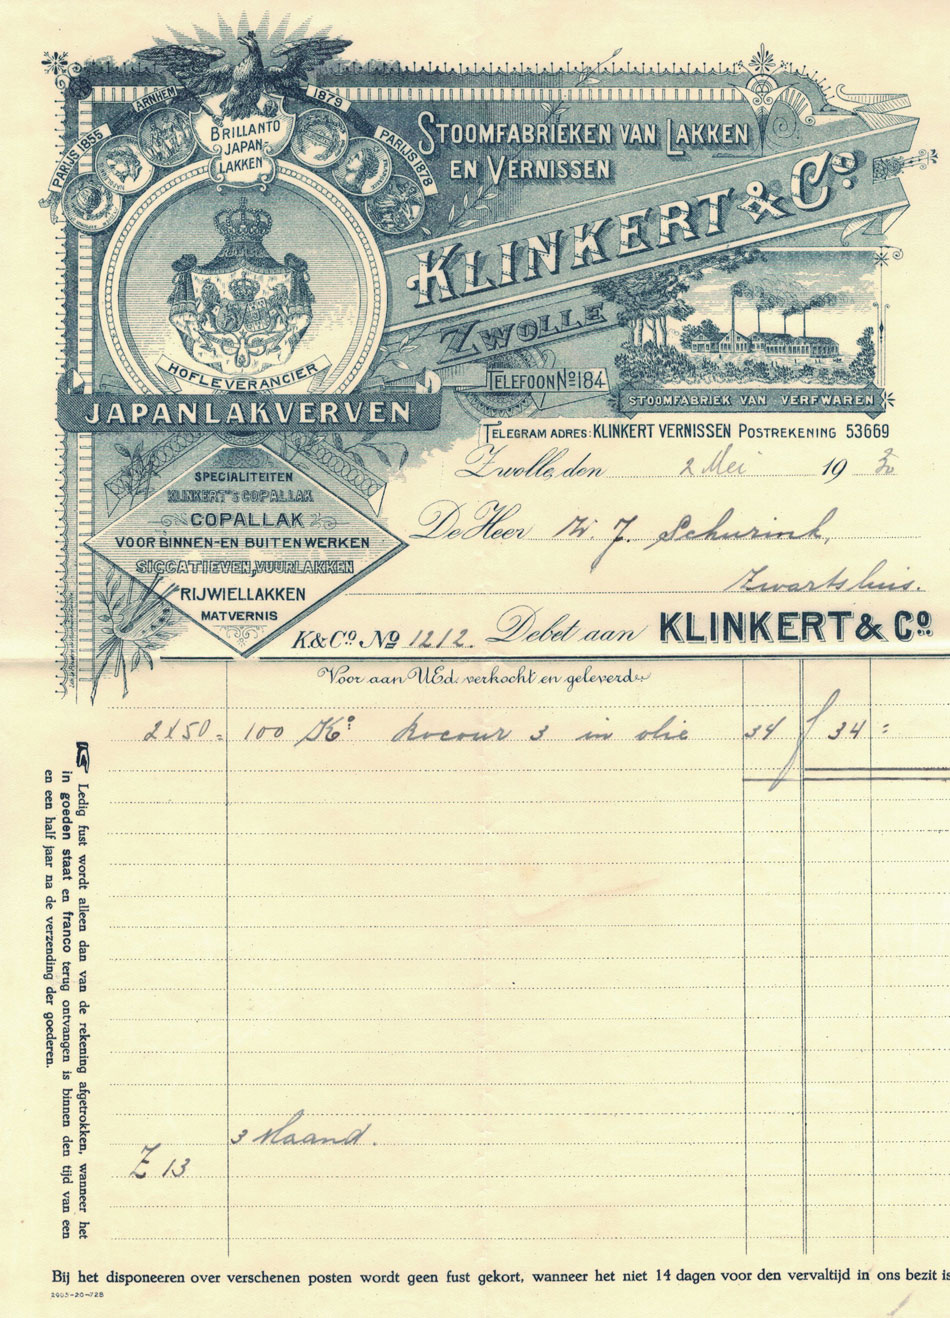 PARIJS 1855
ARNHEM
1879
PARIJS 1878
BRILLANTO
JAPAN
LAKKEN
STOOMFABRIEKEN VAN LAKKEN
EN VERNISSEN
KLINKERT & Co
ZWOLLE
HOFLEVERANCIER
JAPANLAKVERVEN
TELEFOON No 184
STOOMFABRIEK VAN VERFWAREN
TELEGRAM ADRES: KLINKERT VERNISSEN POSTREKENING 53669
Zwolle, den 2 Mei 19
SPECIALITEITEN
KLINKERT'S COPALLAK
COPALLAK
VOOR BINNEN- EN BUITENWERKEN
SICCATIEVEN, VUURLAKKEN
RIJWIELLAKKEN
MATVERNIS
De Heer W. J. Schurink,
Zwartsluis.
K & Co No 1212. Debet aan KLINKERT & Co
Voor aan UEd. verkocht en geleverd
2 x 50 = 100 Ko in olie 34 34 :
3 Maand.
Z 13
Ledig fust wordt alleen dan van de rekening afgetrokken, wanneer het
in goeden staat en franco terug ontvangen is binnen den tijd van een
en een half jaar na de verzending der goederen.
Bij het disponeeren over verschenen posten wordt geen fust gekort, wanneer het niet 14 dagen voor den vervaltijd in ons bezit is